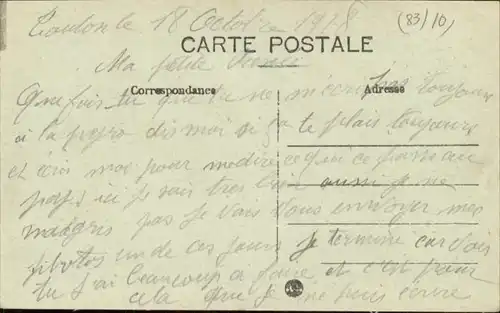 Toulon le 18 Octobre 1918
(83)/10)
CARTE POSTALE
Ma petite
Correspondance
Adresse
Que fais tu que tu ne m'écris pas toujours
à la dis moi si ça te plais toujours
et écris moi pour me dire ce qui ce passe au
pays ici je suis très bien aussi je ne
maigris pas je vais vous envoyer mes
photos un de ces jours je termine car vois
tu j'ai beaucoup a faire et c'est pour
cela que je ne puis écrire